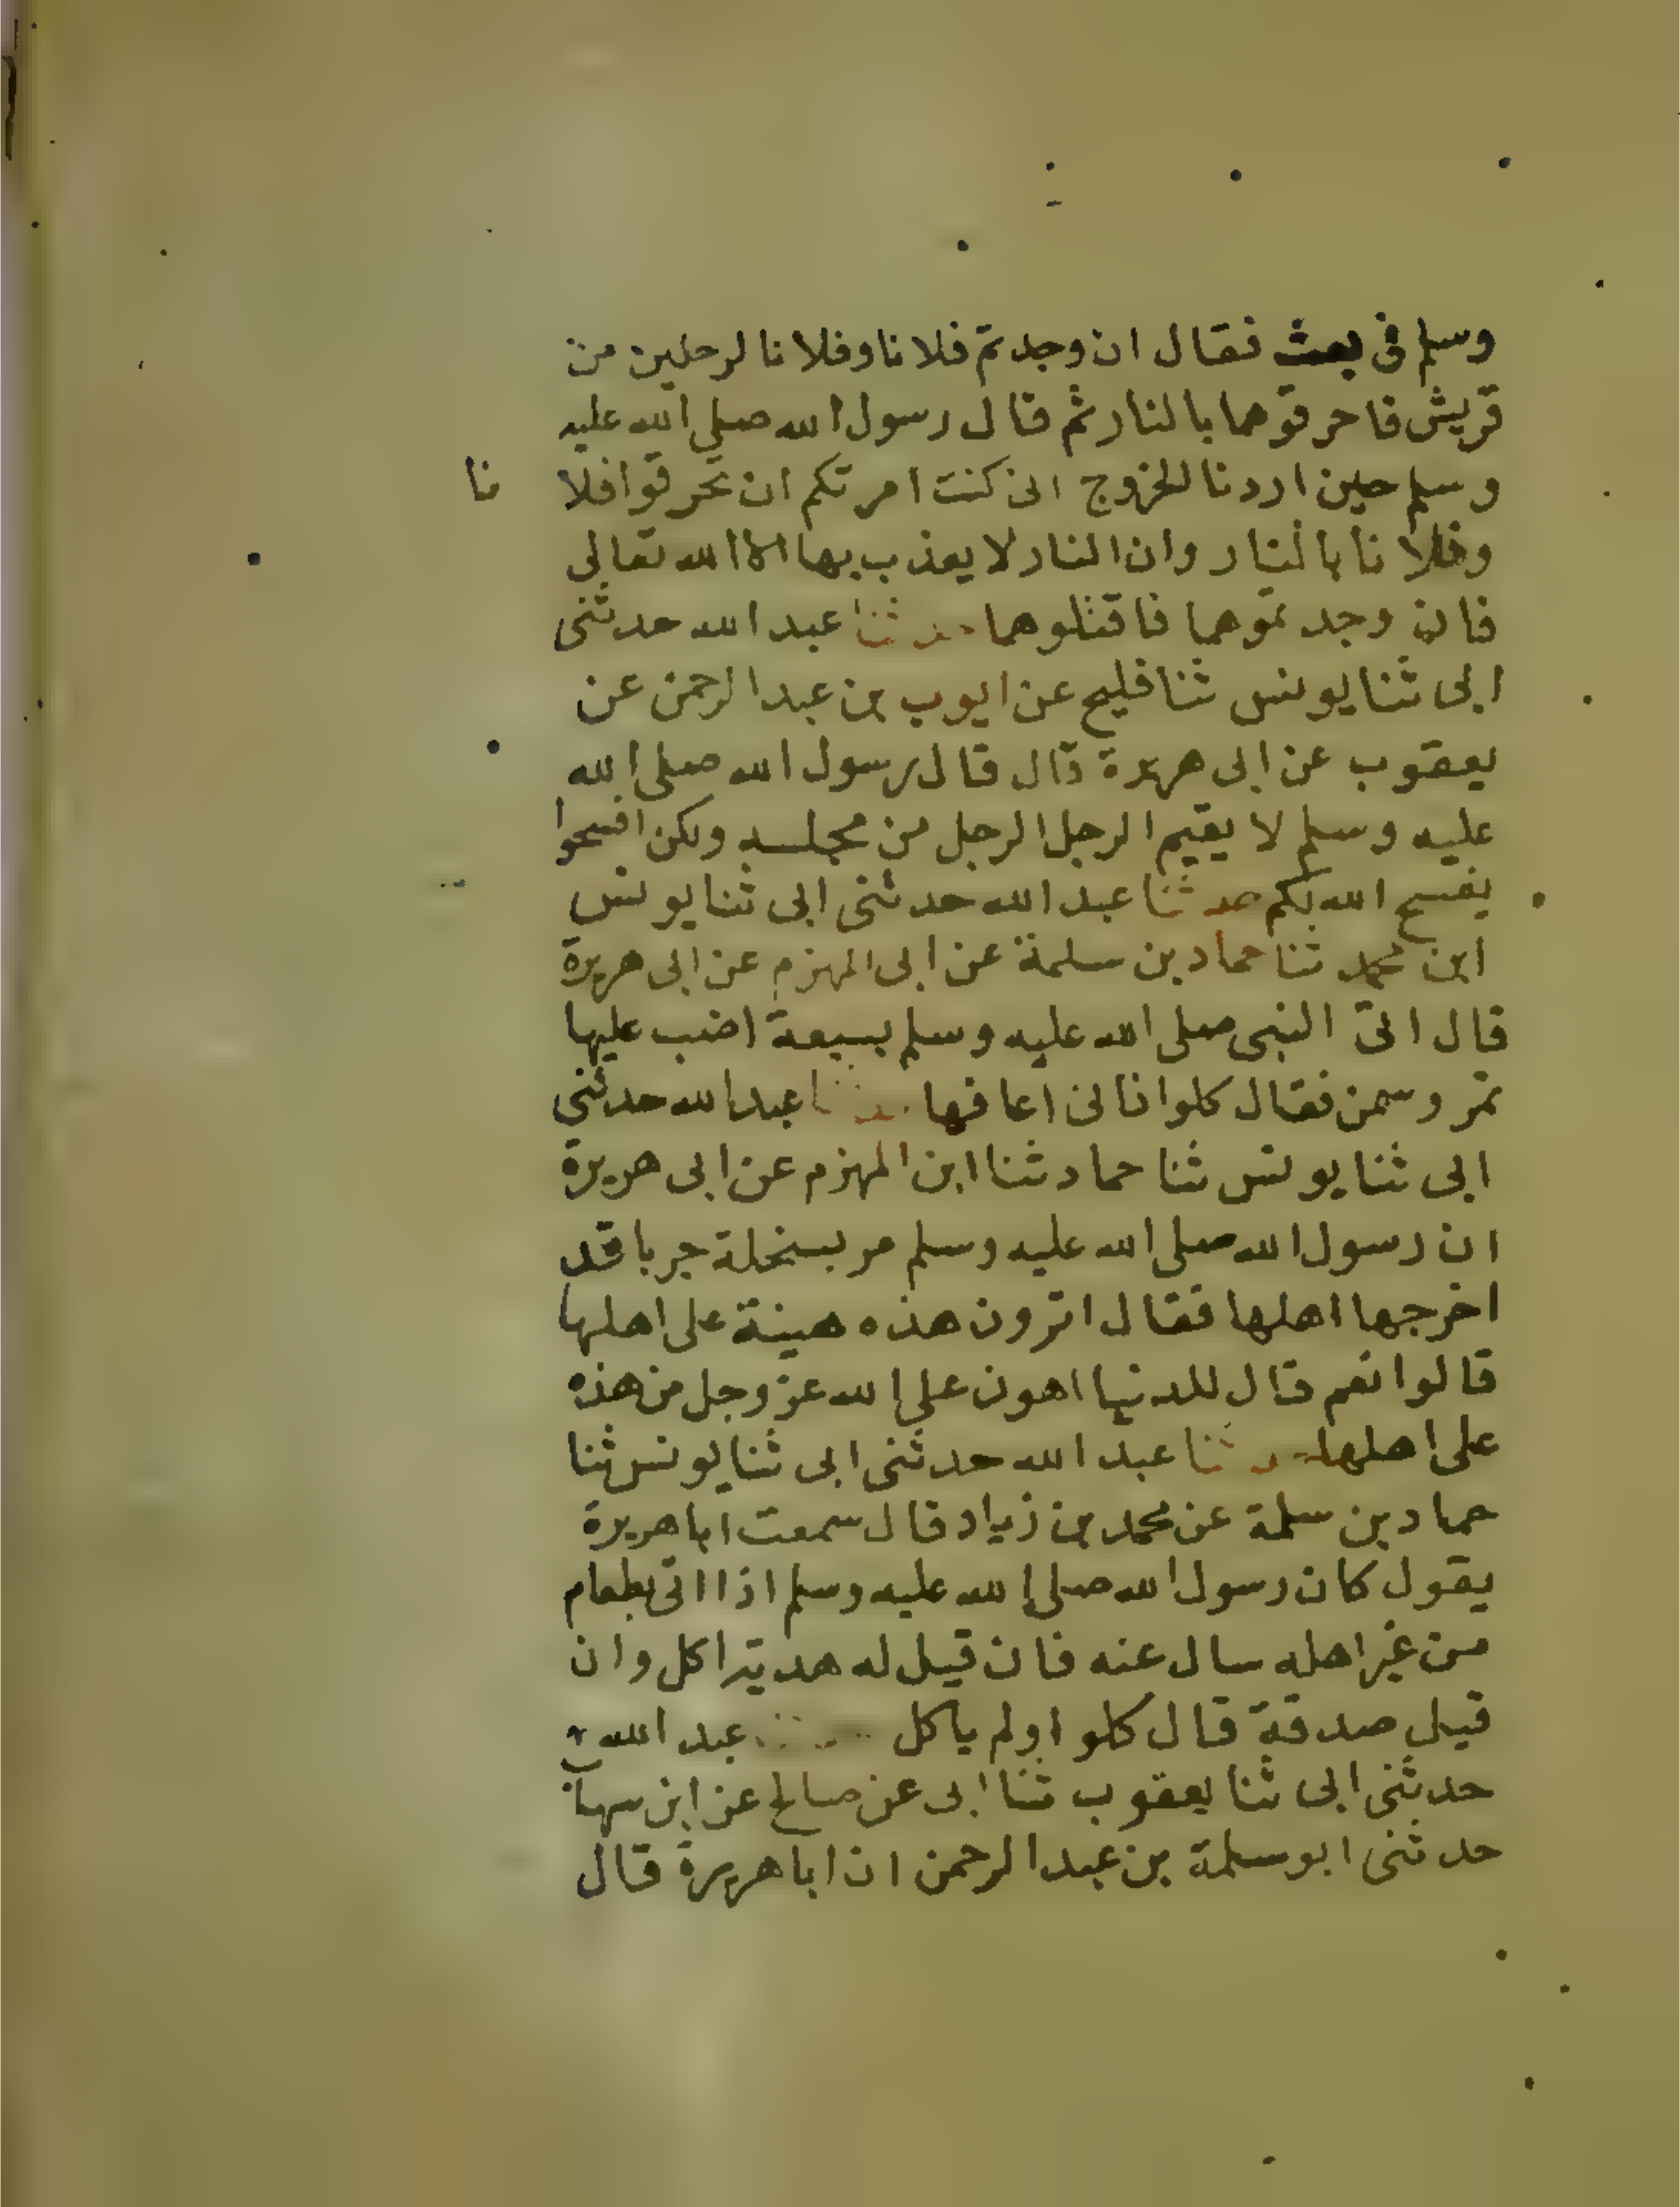 وسلم فى بعث فقال ان وجدتم فلانا وفلانا لرجلين من
قريش فاحرقوهما بالنار ثم قال رسول الله صلى الله عليه
وسلم حين اردنا الخروج انى كنت امرتكم ان تحرقوا فلا نا
وفلا نا بالنار وان النار لا يعذب بها الا الله تعالى
فان وجدتموهما فاقتلوهما حدثنا عبد الله حدثنى
ابى ثنا يونس ثنا فليح عن ايوب بن عبد الرحمن عن
يعقوب عن ابى هريرة قال قال رسول الله صلى الله
عليه وسلم لا يقيم الرجل الرجل من مجلسه ولكن افسحوا
يفسح الله لكم حدثنا عبد الله حدثنى ابى ثنا يونس
ابن محمد ثنا حماد بن سلمة عن ابى المهزم عن ابى هريرة
قال اتى النبى صلى الله عليه وسلم بسبعة اضب عليها
تمر وسمن فقال كلوا فانى اعافها حدثنا عبد الله حدثنى
ابى ثنا يونس ثنا حماد ثنا ابن المهزم عن ابى هريرة
ان رسول الله صلى الله عليه وسلم مر بسخلة جربا قد
اخرجها اهلها فقال اترون هذه هينة على اهلها
قالوا نعم قال للدنيا اهون على الله عز وجل من هذه
على اهلها حدثنا عبد الله حدثنى ابى ثنا يونس ثنا
حماد بن سلمة عن محمد بن زياد قال سمعت ابا هريرة
يقول كان رسول الله صلى الله عليه وسلم اذا اتى بطعام
من غير اهله سال عنه فان قيل له هدية اكل وان
قيل صدقة قال كلوا ولم ياكل عبد الله
حدثنى ابى ثنا يعقوب ثنا ابى عن صالح عن ابن
حدثنى ابو سلمة بن عبد الرحمن ان ابا هريرة قال